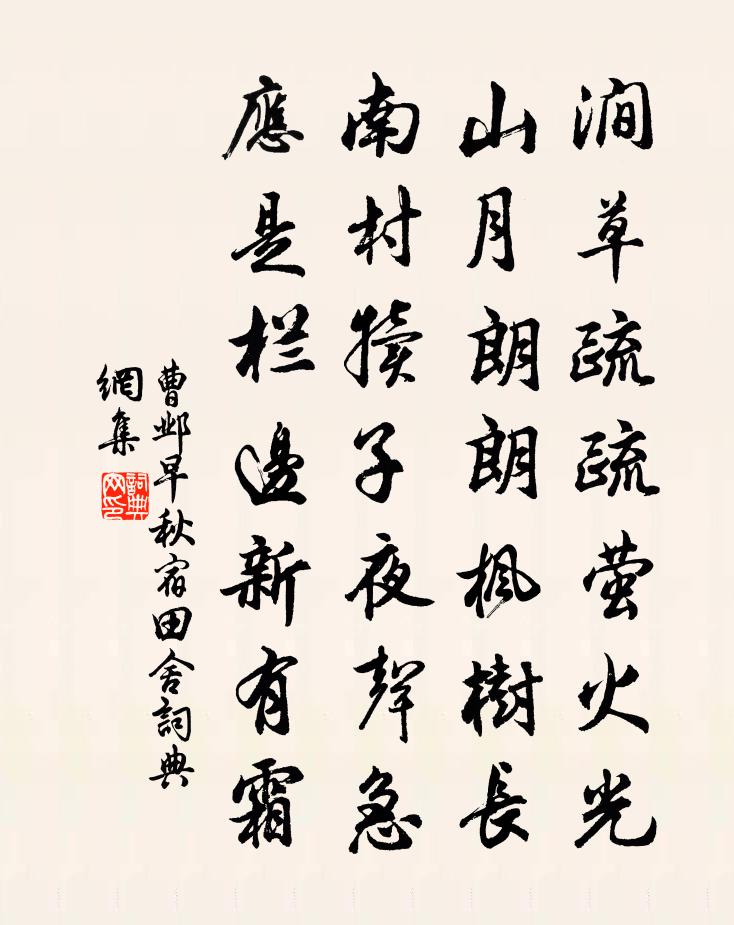 澗草疏疏萤火光
山月朗朗枫樹長
南村犢子夜聲急
應是栏邊新有霜
曹邺早秋宿田舍詞典
網集
詞典
网印